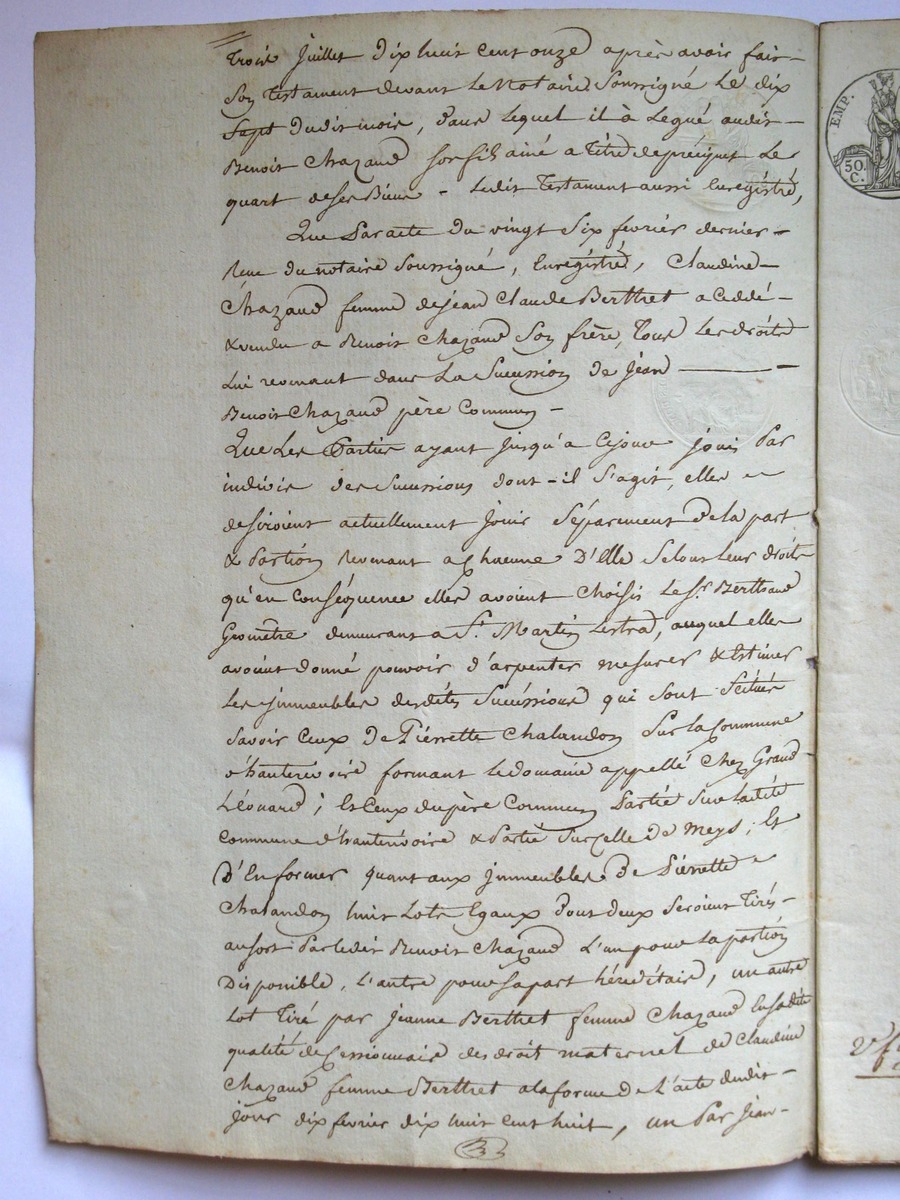 trois juillet dix huit cent onze après avoir fait
son testament devant le notaire soussigné le dix
sept dudit mois, dans lequel il à légué audit
Benoit Chazaud son fils ainé a titre de préciput le
quart de ses Biens - ledit testament aussi Enregistré,
Que Par acte du vingt six fevrier dernier
Reçu du notaire soussigné, Enregistré, Claudine
Chazaud femme de jean Claude Berthet a cédé
& vendu a Benoit Chazaud son frère, tous les droits
lui revenant dans la Succession de jean
Benoit Chazaud père Commun -
Que les Parties ayant jusqu'a ce jour joui Par
indivis des Successions dont-il s'agit, elles
desiroient actuellement jouir séparement de la part
& Portion Revenant a chacune D'Elle selon leur droits
qu'en conséquence elles avoient choisis le Sr. Berthaud
Géomètre demeurant a St. Martin Lestra, auquel elles
avoient donné pouvoir d'arpenter mesurer & Estimer
les jmmeubles desdites Succéssions qui sont scitués
savoir ceux de Piérrette Chalandon sur la Commune
d'hauterivoire formant le domaine appellé chez Grand
Léonard; Et Ceux du père Commun Partie sur ladite
commune d'hauterivoire & Partie sur celle de Meys; Et
D'En former quant aux jmmeubles de Piérrette
Chalandon huit Lots Egaux dont deux seroient tirés
au sort Par ledit Benoit Chazaud L'un pour la portion
Disponible, L'autre pour sa part héréditaire, un autre
Lot tiré par jeanne Berthet femme Chazaud En sadite
qualité de Cessionnaire des droit maternel de Claudine
Chazaud femme Berthet a la forme de L'acte dudit
jour dix fevrier dix huit cent huit, un Par jean-
EMP.
50.
C.